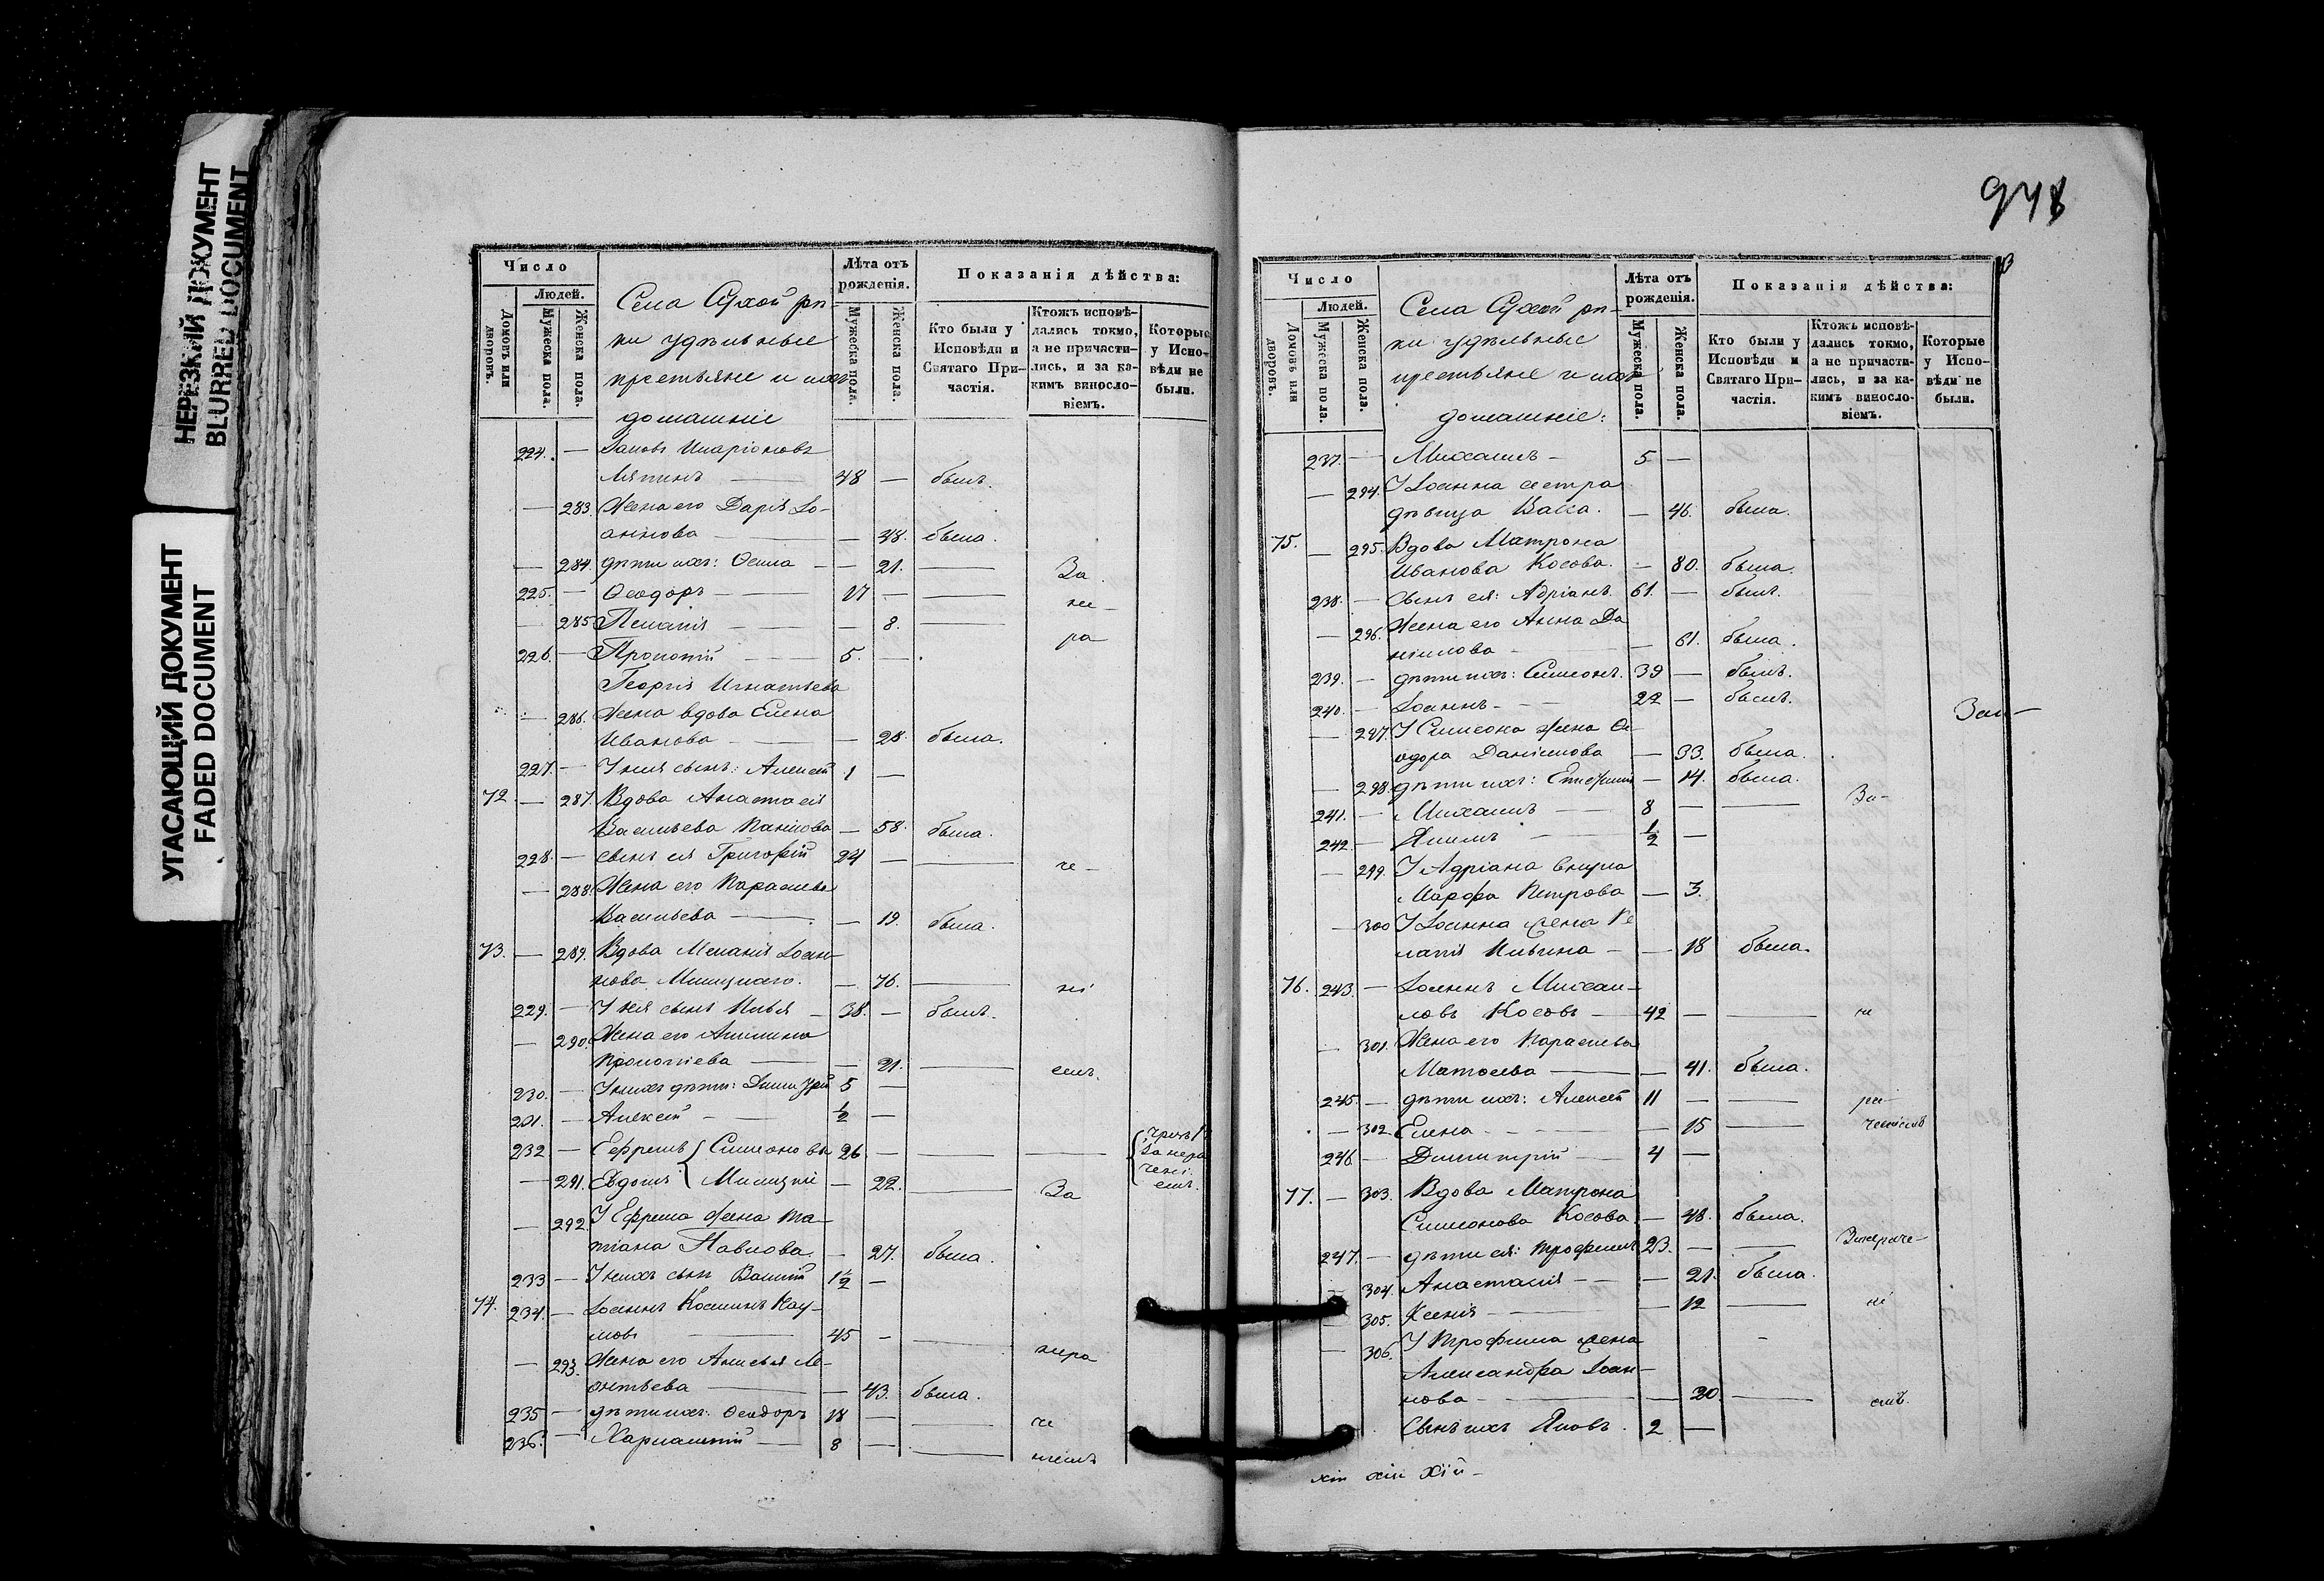 НЕРЕЗКИЙ ДОКУМЕНТ
BLURRED DOCUMENT
УГАСАЮЩИЙ ДОКУМЕНТ
FADED DOCUMENT
Число
Людей.
Домовъ или дворовъ.
Мужеска пола.
Женска пола.
Села Сухой рѣ-
ки удѣльные
крестьяне и ихъ
домашніе
Лѣта отъ рожденія.
Мужеска пола.
Женска пола.
Показанія дѣйства:
Кто были у Исповѣди и Святаго Причастія.
Ктожъ исповѣ-
дались токмо,
а не причасти-
лись, и за ка-
кимъ винословіемъ.
Которые у Испо-
вѣди не были.
224. — Іаковъ Иларіоновъ
Ляпинъ — 48 — былъ.
— 283. Жена его Дарія Іо-
аннова — — 48. была.
— 284. дѣти ихъ: — — 21. — За
225. — Ѳеодоръ — 17 — — не-
— 285. Пелагія — — 8. — ра
226. — Прокопій — 5. —
Георгія Игнатьева
— 286. Жена вдова Елена
Иванова — — 28. была.
227. — У нея сынъ: Алексѣй 1 —
72. — 287. Вдова Анастасія
Васильева — 58. была.
228. — сынъ ея Григорій 24 — — че-
— 288. Жена его Параскева
Васильева — — 19. была.
73. — 289. Вдова Меланія Іоан-
нова — 76. — ні
229. — У нея сынъ Илья — 38. — былъ.
— 290. Жена его Акилина
Прокопіева — — 21. — емъ.
230. — У нихъ дѣти: Димитрій 5 —
231. — Алексѣй — ½ —
232 — Ефремъ Симеоновы 26 — — —
За нера
чені
емъ.
— 291. — 22. — За
— 292. У Ефрема жена Та-
тіана Павлова. — 27. была.
233 — У нихъ сынъ 1½ —
74. 234. — Іоаннъ Нау-
мовъ — 45 — — нера
— 293. Жена его Анисья Ле-
онтьева — — 43. была.
235 — дѣти ихъ: Ѳеодоръ 18 — — че
236. — Харлампій — 8 — — ніемъ
948
Число
Людей.
Домовъ или дворовъ.
Мужеска пола.
Женска пола.
Села Сухой рѣ-
ки удѣльные
крестьяне и ихъ
домашніе:
Лѣта отъ рожденія.
Мужеска пола.
Женска пола.
Показанія дѣйства:
Кто были у Исповѣди и Святаго Причастія.
Ктожъ исповѣ-
дались токмо,
а не причасти-
лись, и за ка-
кимъ винословіемъ.
Которые у Испо-
вѣди не были.
237. — Михаилъ — 5 —
— 294. У Іоанна сестра
дѣвица Васса. — 46. была.
75. — 295. Вдова Матрона
Иванова Косова. — 80. была.
238. — Сынъ ея: Адріанъ. 61. — былъ.
— 296. Жена его Анна Да
ніилова — — 61. была.
239. — дѣти ихъ: Симеонъ. 39 — былъ.
240. — Іоаннъ — 22 — былъ.
— 297. У Симеона жена Ѳе
одора Даніилова — 33. была.
— 298. дѣти ихъ: — 14. была.
241. — Михаилъ — 8 — — За-
242. — Якимъ — ½ —
— 299. У Адріана внука
Марфа Петрова — 3.
— 300 У Іоанна жена Пе
лагія Ильина — — 18 была.
76. 243. — Іоаннъ Михаи-
ловъ Косовъ — 42 — — не
— 301. Жена его Параскева
— — 41. была.
245. — дѣти ихъ: Алексѣй 11 — — ра-
— 302. Елена — — 15 — ченіемъ
246 — Димитрій — 4 —
77. — 303. Вдова Матрона
Симеонова Косова. — 48. была.
247. — дѣти ея: Трофимъ 23. — — Занераче-
— 304. Анастасія — — 21. была.
— 305. Ксенія — — 12 — ні
— 306. У Трофима жена
Александра Іоан-
нова — — 20. — емъ.
Сынъ ихъ Яковъ. 2 —